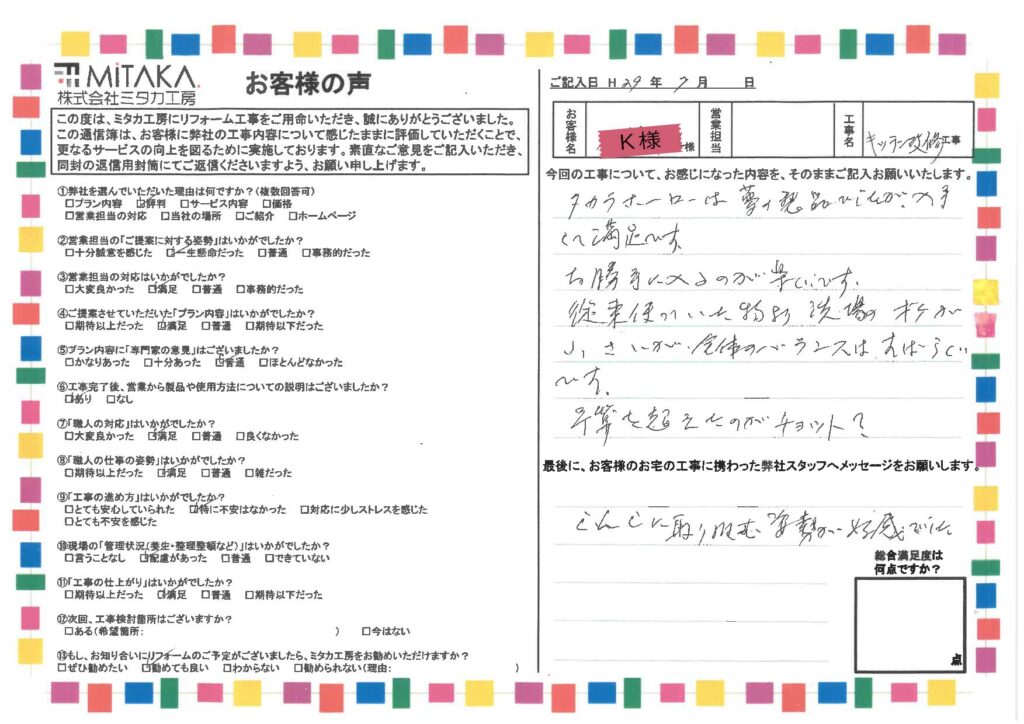 MiTAKA
株式会社ミタカ工房
お客様の声
この度は、ミタカ工房にリフォーム工事をご用命いただき、誠にありがとうございました。
この通信簿は、お客様に弊社の工事内容について感じたままに評価していただくことで、
更なるサービスの向上を図るために実施しております。素直なご意見をご記入いただき、
同封の返信用封筒にてご返信くださいますよう、お願い申し上げます。
①弊社を選んでいただいた理由は何ですか？(複数回答可)
□プラン内容 ☑評判 □サービス内容 □価格
□営業担当の対応 □当社の場所 □ご紹介 □ホームページ
②営業担当の「ご提案に対する姿勢」はいかがでしたか？
□十分誠意を感じた ☑一生懸命だった □普通 □事務的だった
③営業担当の対応はいかがでしたか？
□大変良かった ☑満足 □普通 □事務的だった
④ご提案させていただいた「プラン内容」はいかがでしたか？
□期待以上だった ☑満足 □普通 □期待以下だった
⑤プラン内容に「専門家の意見」はございましたか？
□かなりあった □十分あった ☑普通 □ほとんどなかった
⑥工事完了後、営業から製品や使用方法についての説明はございましたか？
☑あり □なし
⑦「職人の対応」はいかがでしたか？
□大変良かった ☑満足 □普通 □良くなかった
⑧「職人の仕事の姿勢」はいかがでしたか？
□期待以上だった ☑満足 □普通 □雑だった
⑨「工事の進め方」はいかがでしたか？
□とても安心していられた ☑特に不安はなかった □対応に少しストレスを感じた
□とても不安を感じた
⑩現場の「管理状況(養生・整理整頓など)」はいかがでしたか？
□言うことなし ☑配慮があった □普通 □できていない
⑪「工事の仕上がり」はいかがでしたか？
□期待以上だった ☑満足 □普通 □期待以下だった
⑫次回、工事検討箇所はございますか？
□ある(希望箇所: ) □今はない
⑬もし、お知り合いにリフォームのご予定がございましたら、ミタカ工房をお勧めいただけますか？
□ぜひ勧めたい ☑勧めても良い □わからない □勧められない(理由: )
ご記入日 H 29 年 7 月 日
お客様名 K様 様 営業担当 工事名 キッチン改修工事
今回の工事について、お感じになった内容を、そのままご記入お願いいたします。
タカラホーローは夢の商品でしたが、入手
して満足です。
お勝手に入るのが楽しいです。
従来使っていた物より洗場のオケが
小さいが、全体のバランスはすばらしい
です。
予算を超えたのがチョット？
最後に、お客様のお宅の工事に携わった弊社スタッフへメッセージをお願いします。
しんしに取り組む姿勢が好感でした
総合満足度は
何点ですか？
点